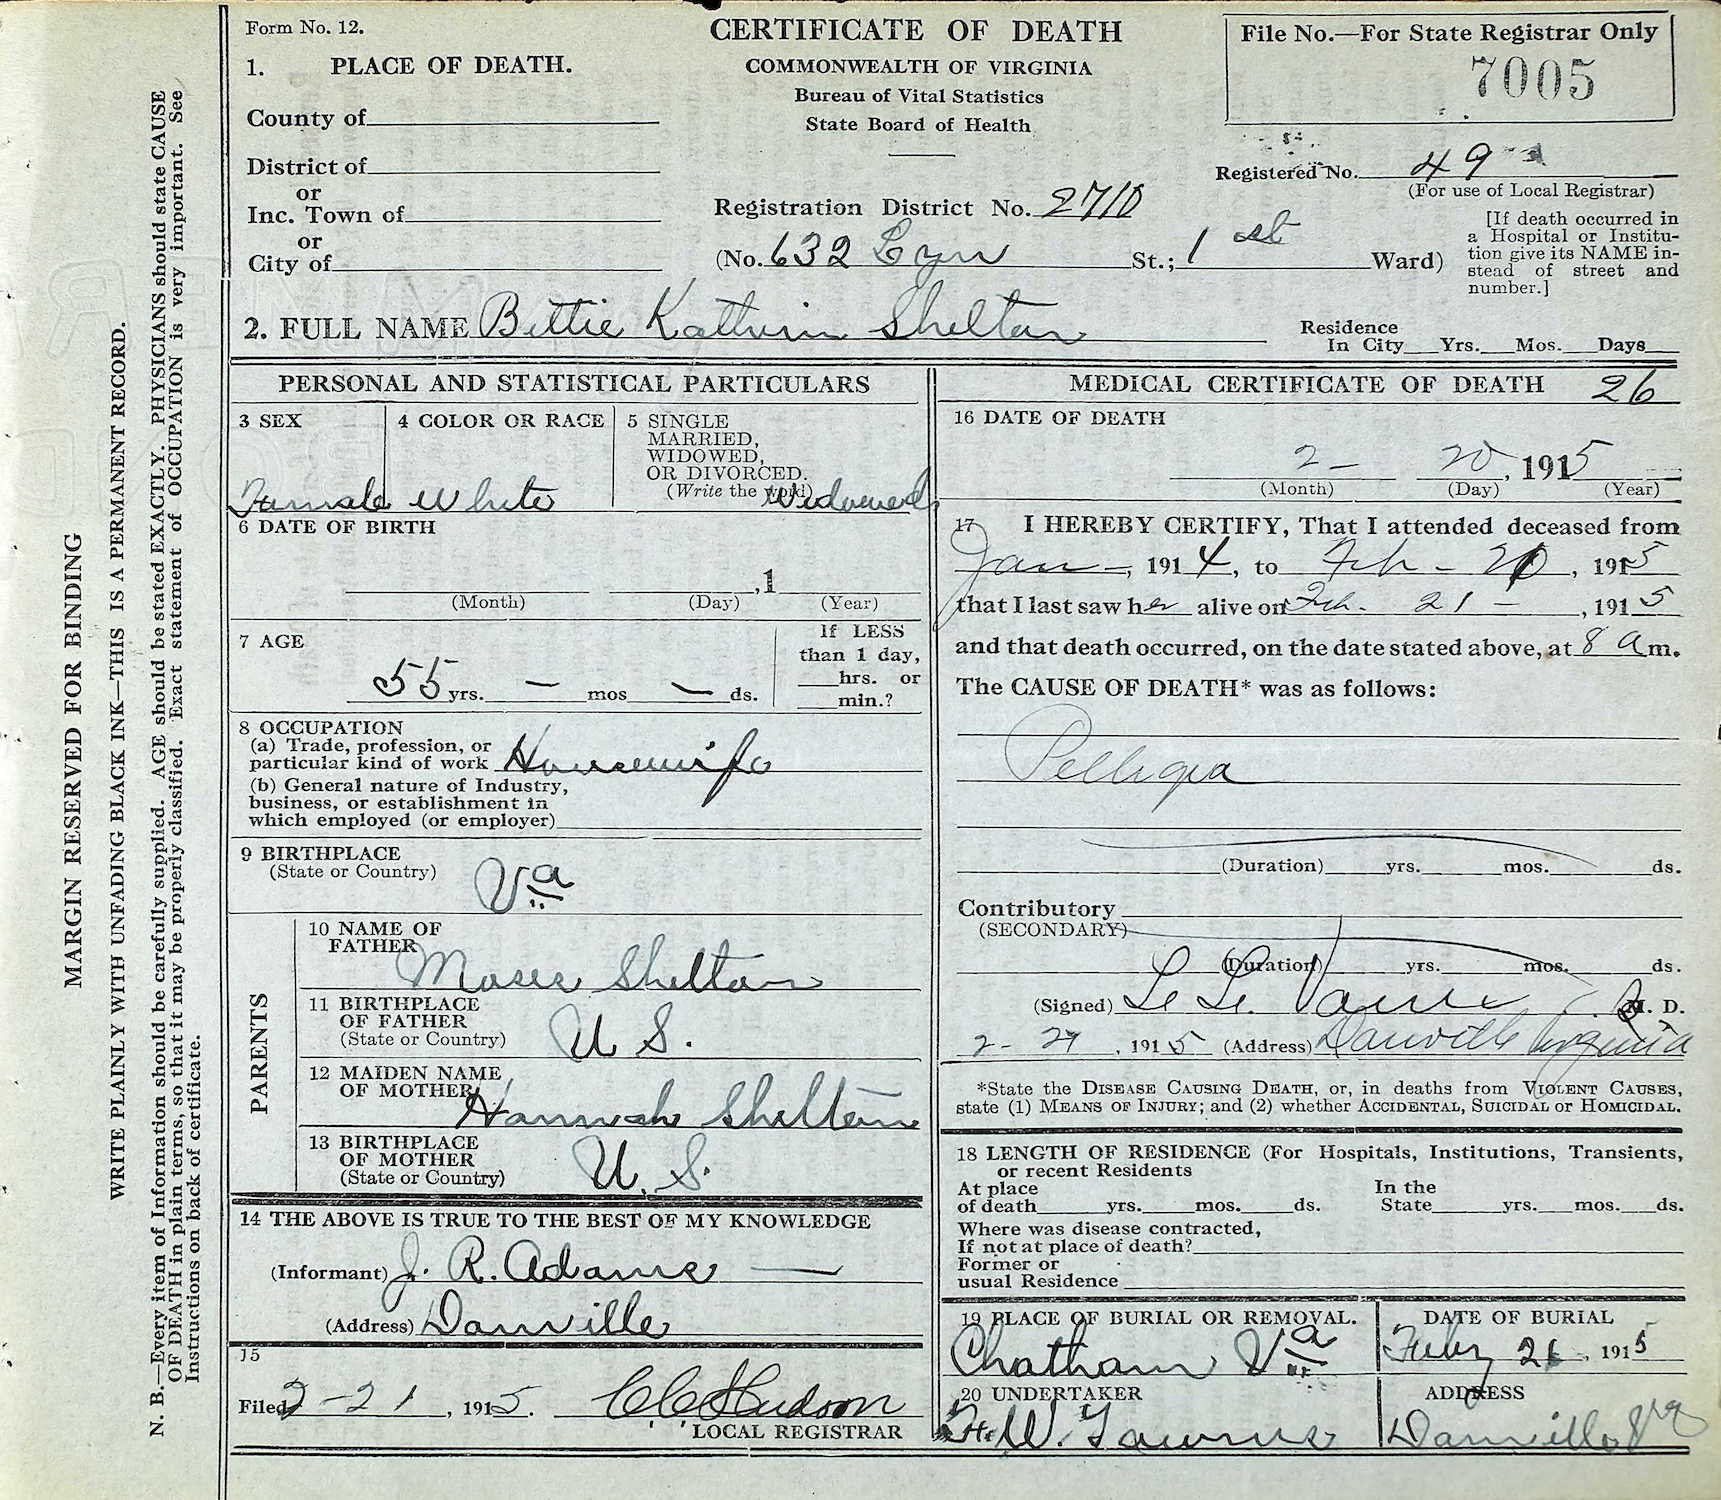 Form No. 12.
CERTIFICATE OF DEATH
COMMONWEALTH OF VIRGINIA
Bureau of Vital Statistics
State Board of Health
File No.—For State Registrar Only
7005
1. PLACE OF DEATH.
County of
District of
or
Inc. Town of
or
City of
Registered No. 49
(For use of Local Registrar)
Registration District No. 2710
(No. 632 Lyn St.; 1st Ward)
[If death occurred in
a Hospital or Institu-
tion give its NAME in-
stead of street and
number.]
2. FULL NAME Bettie Kathrin Shelton
Residence
In City Yrs. Mos. Days
PERSONAL AND STATISTICAL PARTICULARS
3 SEX
Female
4 COLOR OR RACE
White
5 SINGLE
MARRIED,
WIDOWED,
OR DIVORCED.
(Write the word)
Widowed
6 DATE OF BIRTH
, 1
(Month) (Day) (Year)
7 AGE
55 yrs. — mos — ds.
If LESS
than 1 day,
hrs. or
min.?
8 OCCUPATION
(a) Trade, profession, or
particular kind of work Housewife
(b) General nature of Industry,
business, or establishment in
which employed (or employer)
9 BIRTHPLACE
(State or Country)
Va
PARENTS
10 NAME OF
FATHER
Moses Shelton
11 BIRTHPLACE
OF FATHER
(State or Country)
U S.
12 MAIDEN NAME
OF MOTHER
Hannah Shelton
13 BIRTHPLACE
OF MOTHER
(State or Country)
U. S.
14 THE ABOVE IS TRUE TO THE BEST OF MY KNOWLEDGE
(Informant) J. R. Adams —
(Address) Danville
15
Filed 2-21, 1915. C.C. Hudson
LOCAL REGISTRAR
MEDICAL CERTIFICATE OF DEATH 26
16 DATE OF DEATH
2- 20, 1915
(Month) (Day) (Year)
17 I HEREBY CERTIFY, That I attended deceased from
Jan—, 1914, to Feb - , 1915
that I last saw her alive on Feb. 21 -, 1915
and that death occurred, on the date stated above, at 8 a m.
The CAUSE OF DEATH* was as follows:
Pellegra
(Duration) yrs. mos. ds.
Contributory
(SECONDARY)
(Duration) yrs. mos. ds.
(Signed) M. D.
2- , 1915 (Address) Danville Virginia
*State the DISEASE CAUSING DEATH, or, in deaths from VIOLENT CAUSES,
state (1) MEANS OF INJURY; and (2) whether ACCIDENTAL, SUICIDAL or HOMICIDAL.
18 LENGTH OF RESIDENCE (For Hospitals, Institutions, Transients,
or recent Residents
At place
of death yrs. mos. ds.
In the
State yrs. mos. ds.
Where was disease contracted,
If not at place of death?
Former or
usual Residence
19 PLACE OF BURIAL OR REMOVAL.
Chatham Va
DATE OF BURIAL
Feby 21, 1915
20 UNDERTAKER
W. Townes
ADDRESS
Danville Va
MARGIN RESERVED FOR BINDING
WRITE PLAINLY WITH UNFADING BLACK INK—THIS IS A PERMANENT RECORD.
N. B.—Every item of Information should be carefully supplied. AGE should be stated EXACTLY. PHYSICIANS should state CAUSE
OF DEATH in plain terms, so that it may be properly classified. Exact statement of OCCUPATION is very important. See
Instructions on back of certificate.